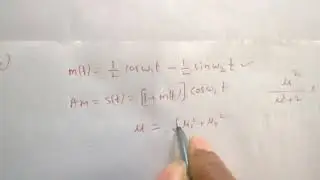 m(t) = 1/2 cos ω₁t − 1/2 sin ω₂t ✓
AM = s(t) = [1+m(t)] cos ωct
μ²
μ²+2
μ = √μ₁²+μ₂²